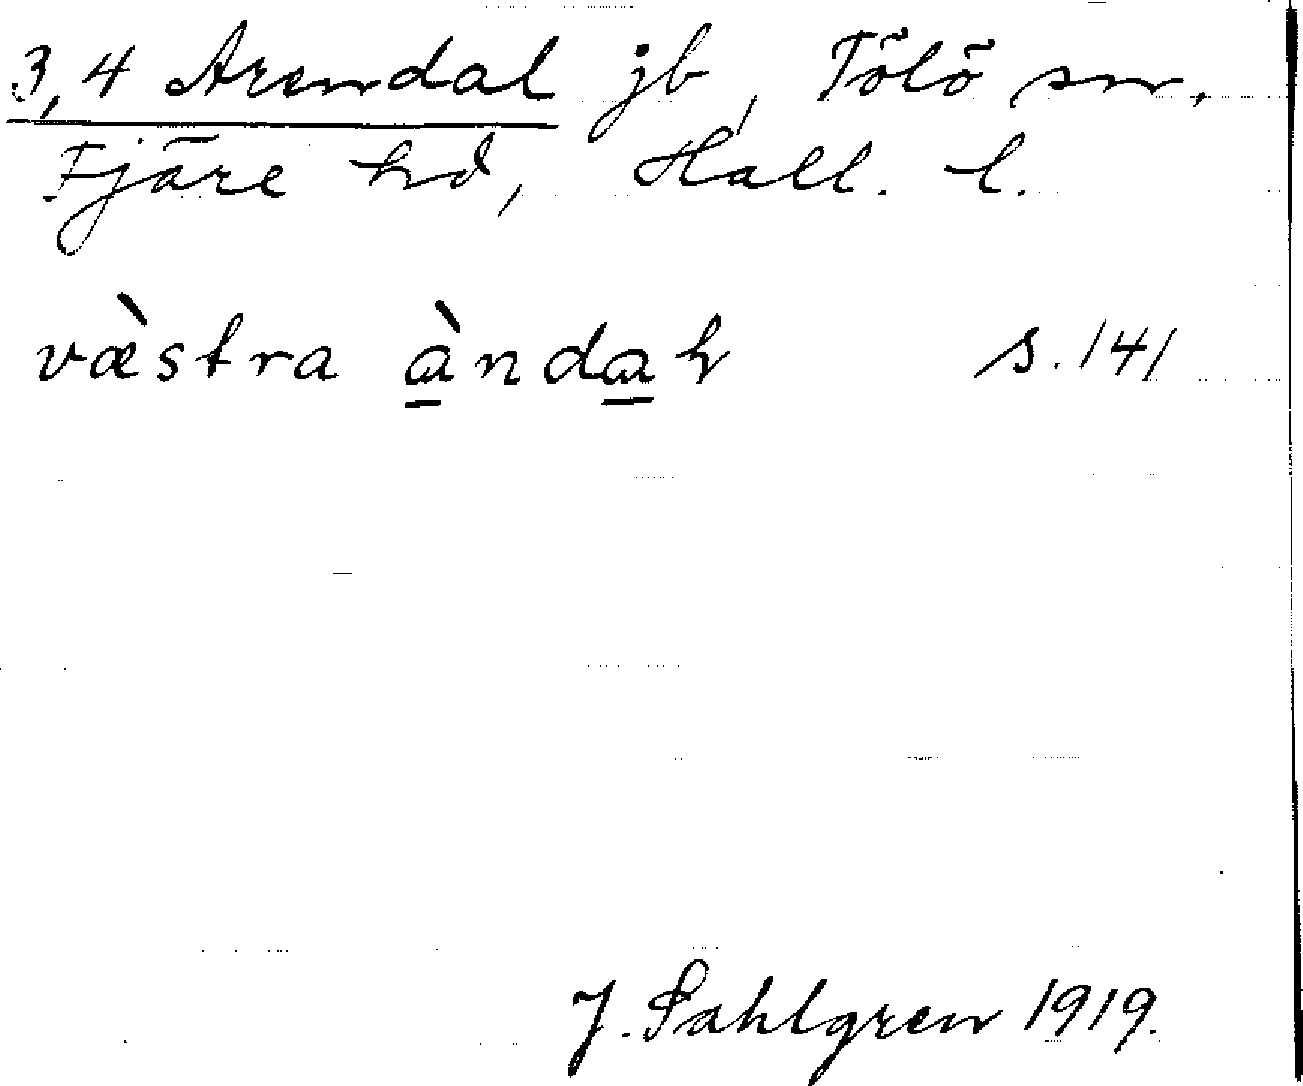 3,4 Arendal jb, Tölö sn.
Fjäre hd, Hall. l.
væ̀stra à̱nda̱h s. 141
J. Sahlgren 1919.